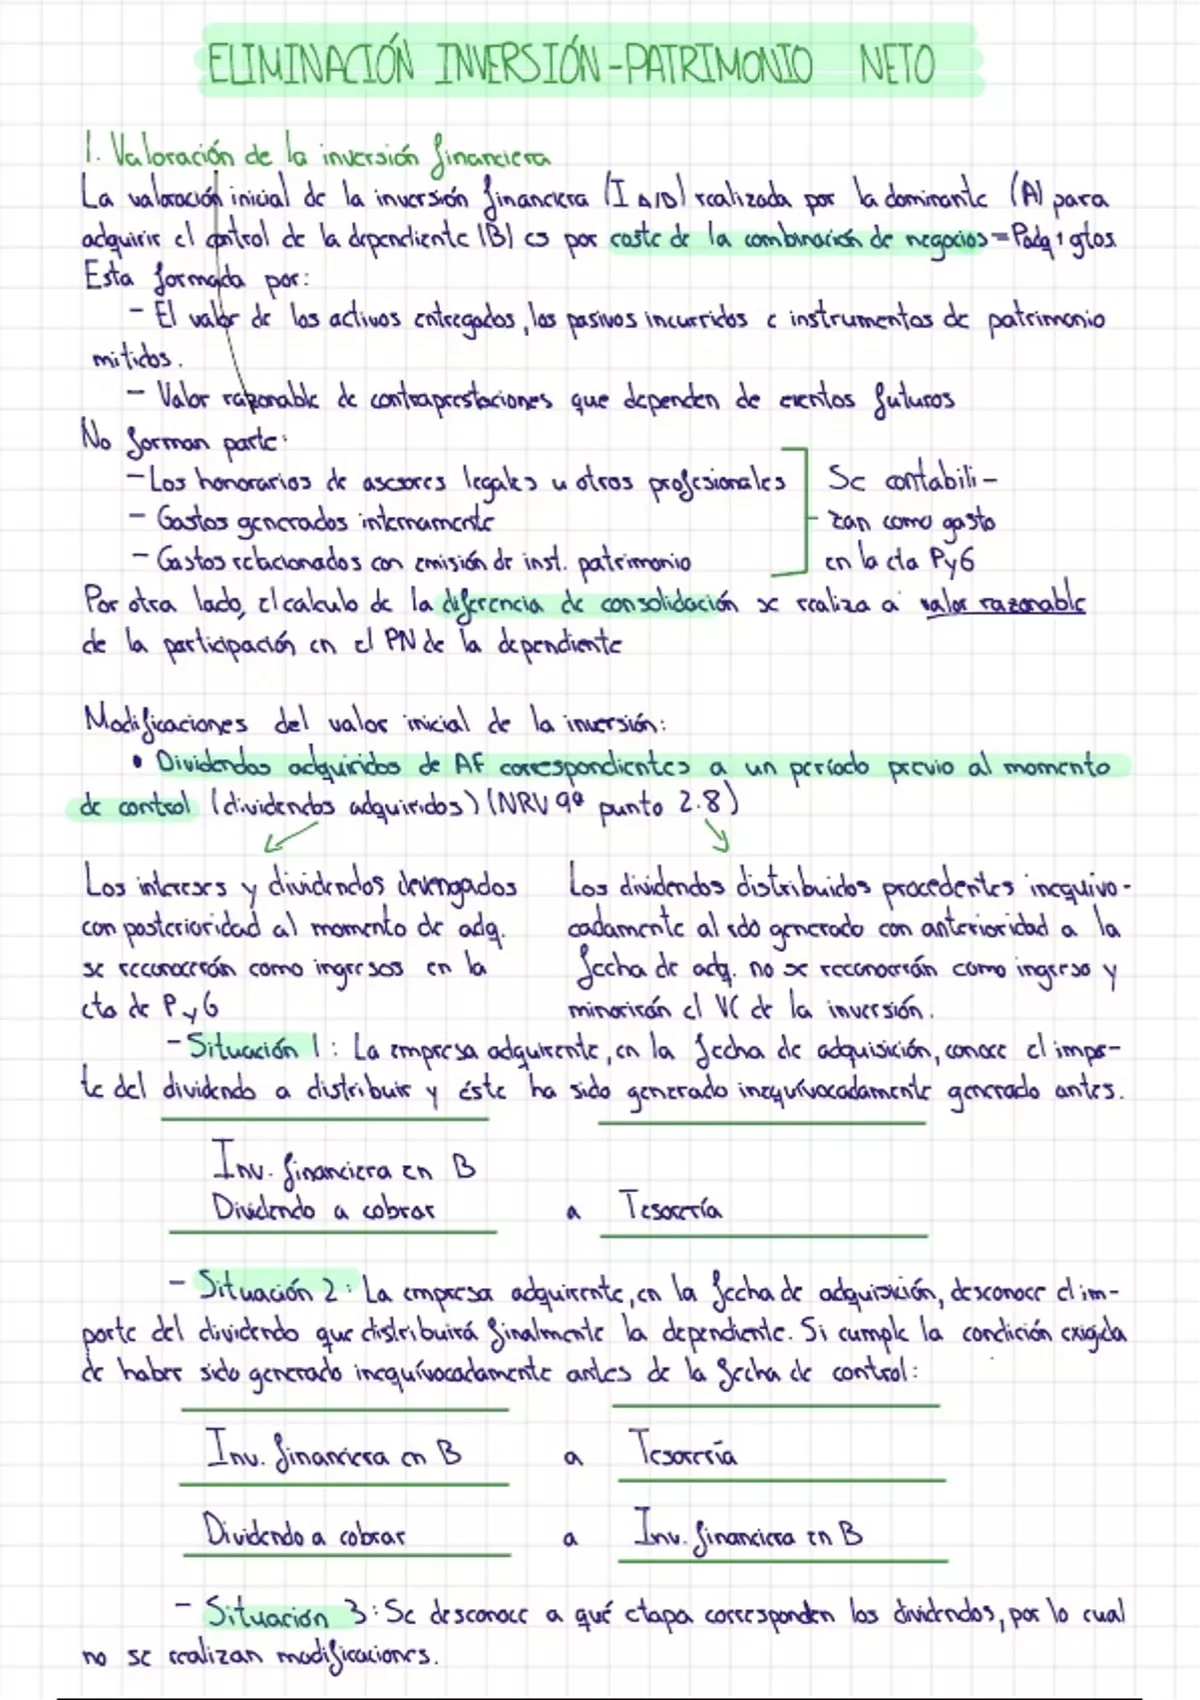 ELIMINACIÓN INVERSIÓN-PATRIMONIO NETO
1. Valoración de la inversión financiera
La valoración inicial de la inversión financiera (I A/B) realizada por la dominante (A) para
adquirir el control de la dependiente (B) es por coste de la combinación de negocios = Padq + gtos
Esta formada por:
- El valor de los activos entregados, los pasivos incurridos e instrumentos de patrimonio
mitidos.
- Valor razonable de contraprestaciones que dependen de eventos futuros
No forman parte:
- Los honorarios de asesores legales u otros profesionales
- Gastos generados internamente
- Gastos relacionados con emisión de inst. patrimonio
Se contabili-
zan como gasto
en la cta PyG
Por otra lado, el calculo de la diferencia de consolidación se realiza a valor razonable
de la participación en el PN de la dependiente
Modificaciones del valor inicial de la inversión:
• Dividendos adquiridos de AF correspondientes a un período previo al momento
de control (dividendos adquiridos) (NRV 9ª punto 2.8)
Los intereses y dividendos devengados
con posterioridad al momento de adq.
se reconocerán como ingresos en la
cta de P y G
Los dividendos distribuidos procedentes inequivo-
cadamente al rdo generado con anterioridad a la
fecha de adq. no se reconocerán como ingreso y
minorirán el VC de la inversión.
- Situación 1: La empresa adquirente, en la fecha de adquisición, conoce el impor-
te del dividendo a distribuir y éste ha sido generado inequívocadamente generado antes.
Inv. financiera en B
Dividendo a cobrar a Tesorería
- Situación 2: La empresa adquirente, en la fecha de adquisición, desconoce el im-
porte del dividendo que distribuirá finalmente la dependiente. Si cumple la condición exigida
de haber sido generado inequívocadamente antes de la fecha de control:
Inv. financiera en B a Tesorería
Dividendo a cobrar a Inv. financiera en B
- Situación 3: Se desconoce a qué etapa corresponden los dividendos, por lo cual
no se realizan modificaciones.